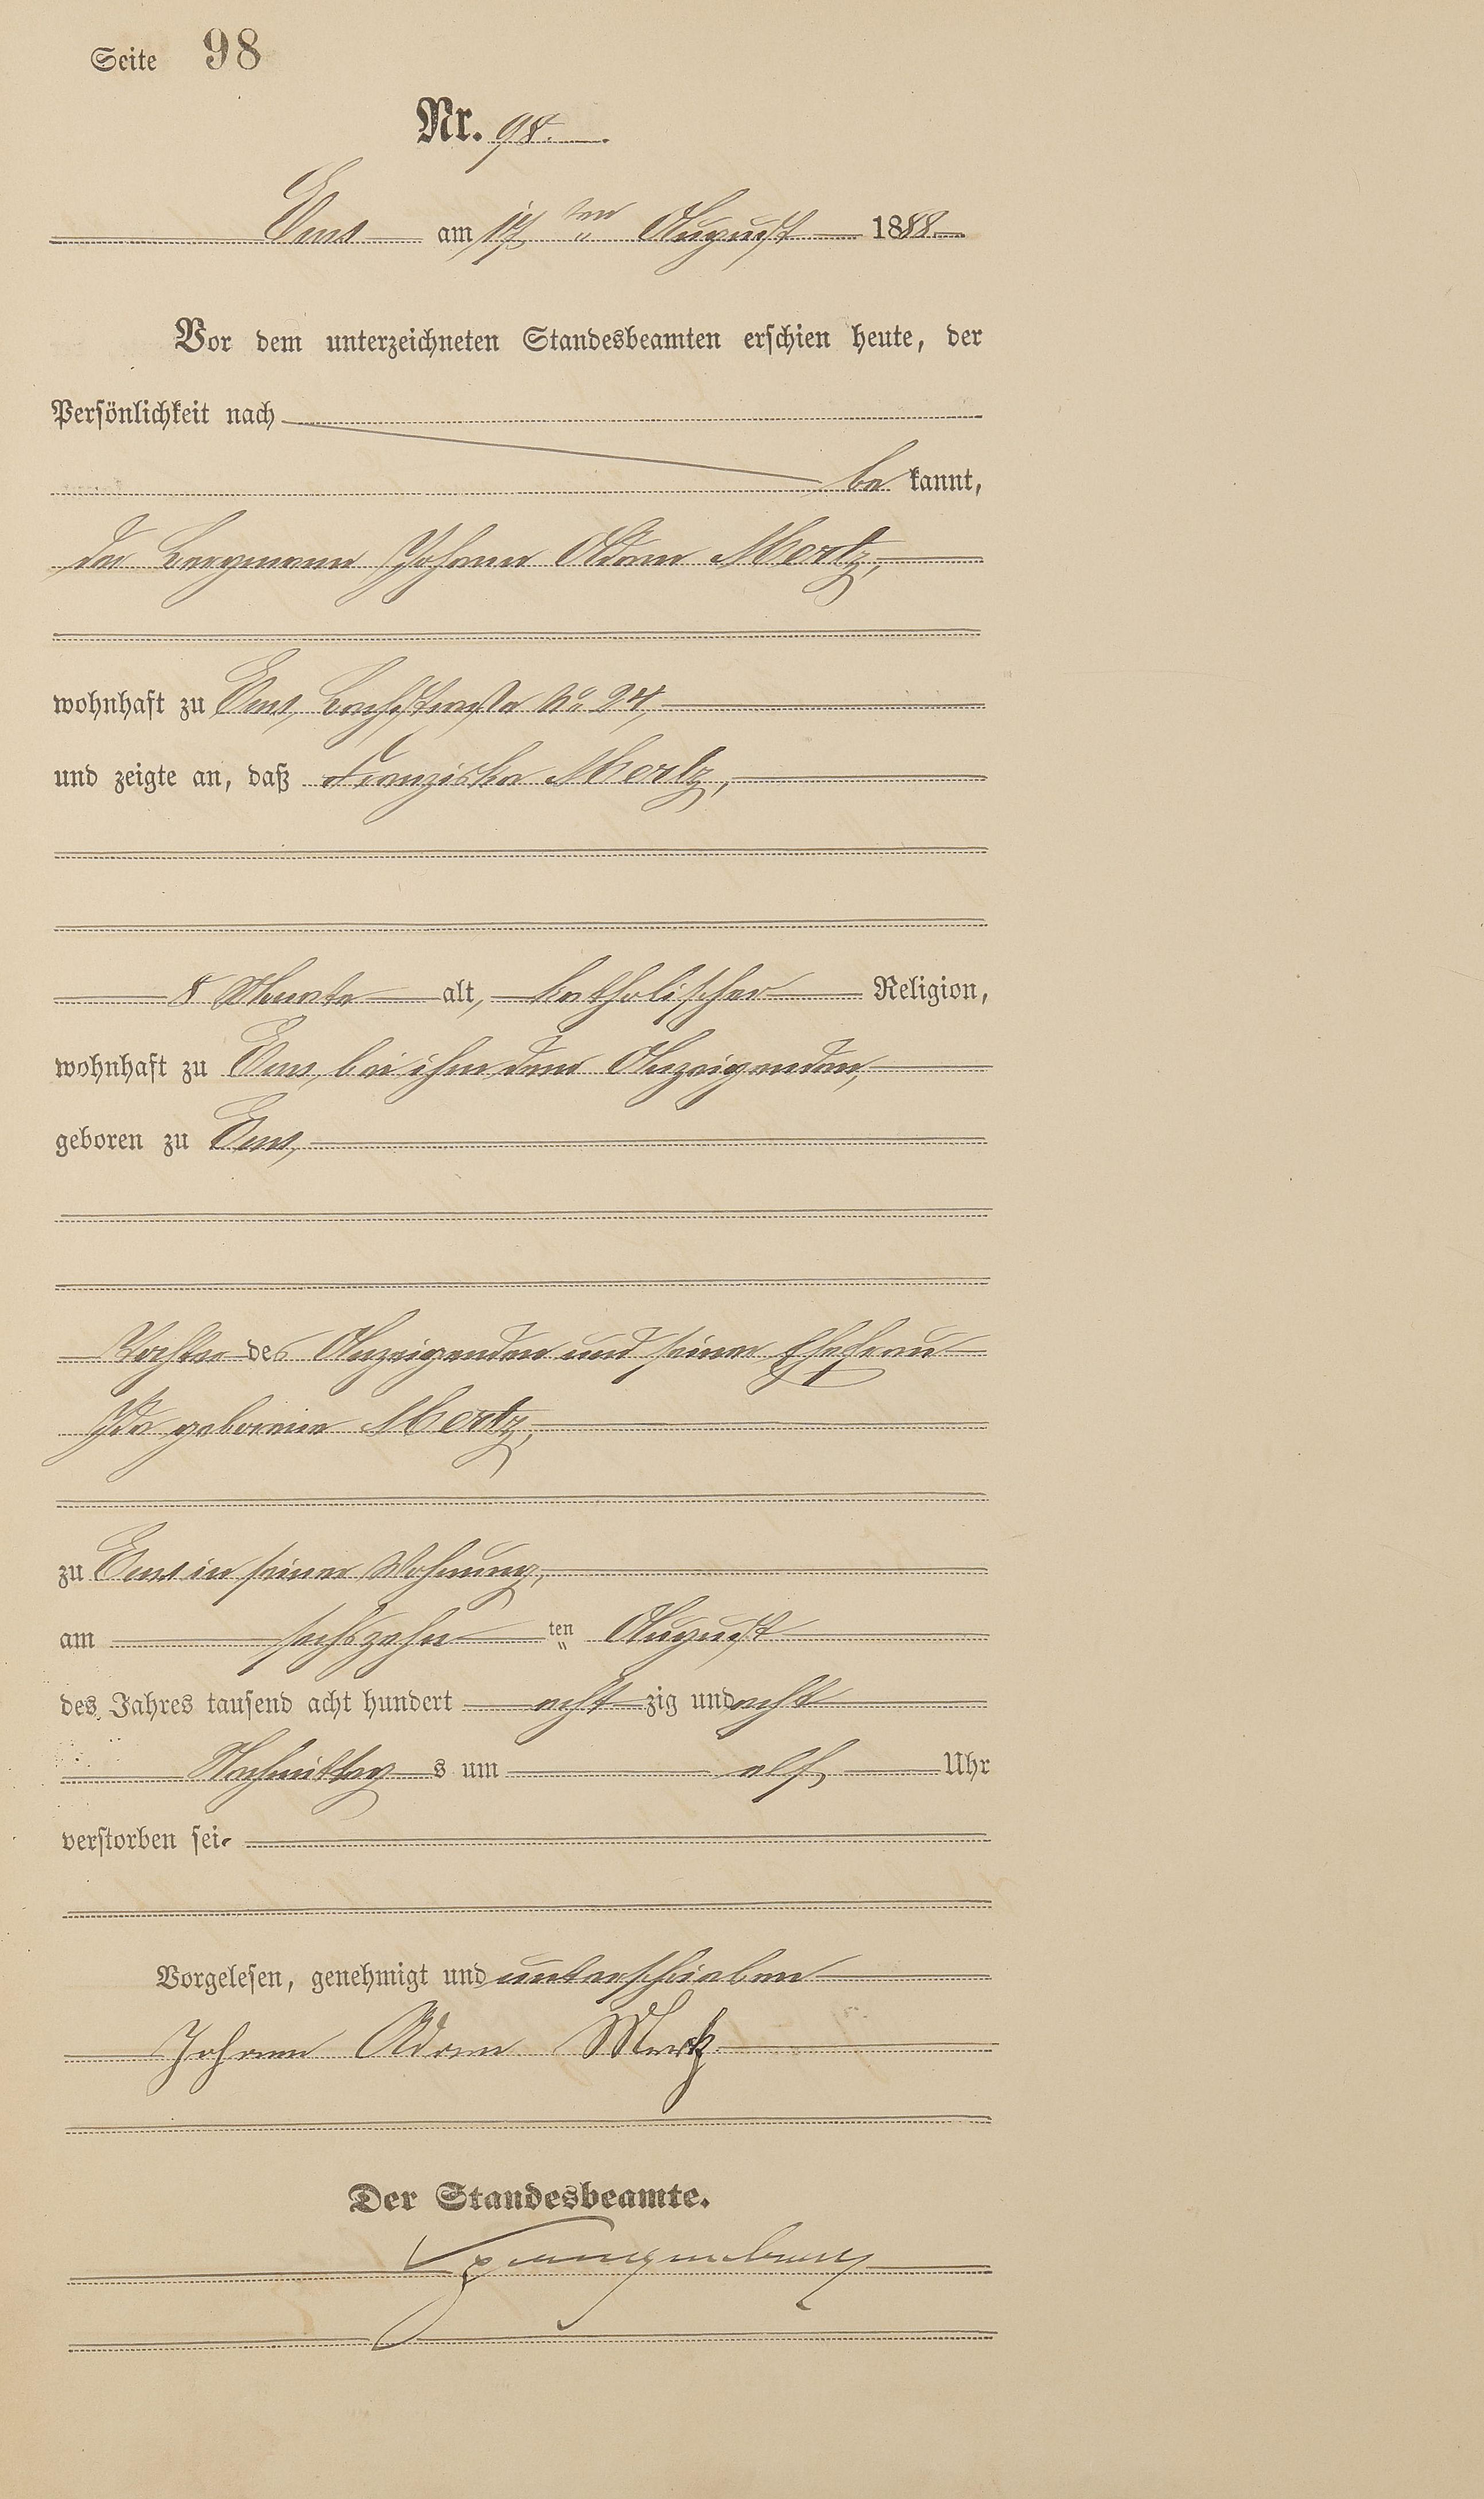 Seite 98
Nr. 98.
Ems am 17ten August 1888.
Vor dem unterzeichneten Standesbeamten erschien heute, der
Persönlichkeit nach
be kannt,
der Bergmann Johann Adam Mertz,
wohnhaft zu Ems, Bachstraße No 24,
und zeigte an, daß Franziska Mertz,
8 Monate alt, katholischer Religion,
wohnhaft zu Ems, bei ihm dem Anzeigenden,
geboren zu Ems,
Tochter des Anzeigenden und seiner Ehefrau
Ida geborene Mertz,
zu Ems in seiner Wohnung,
am sechszehn ten August
des Jahres tausend acht hundert acht zig und acht
Nachmittag s um elf Uhr
verstorben sei.
Vorgelesen, genehmigt und unterschrieben
Johann Adam Mertz
Der Standesbeamte.